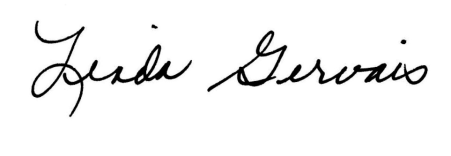 Linda Gervais